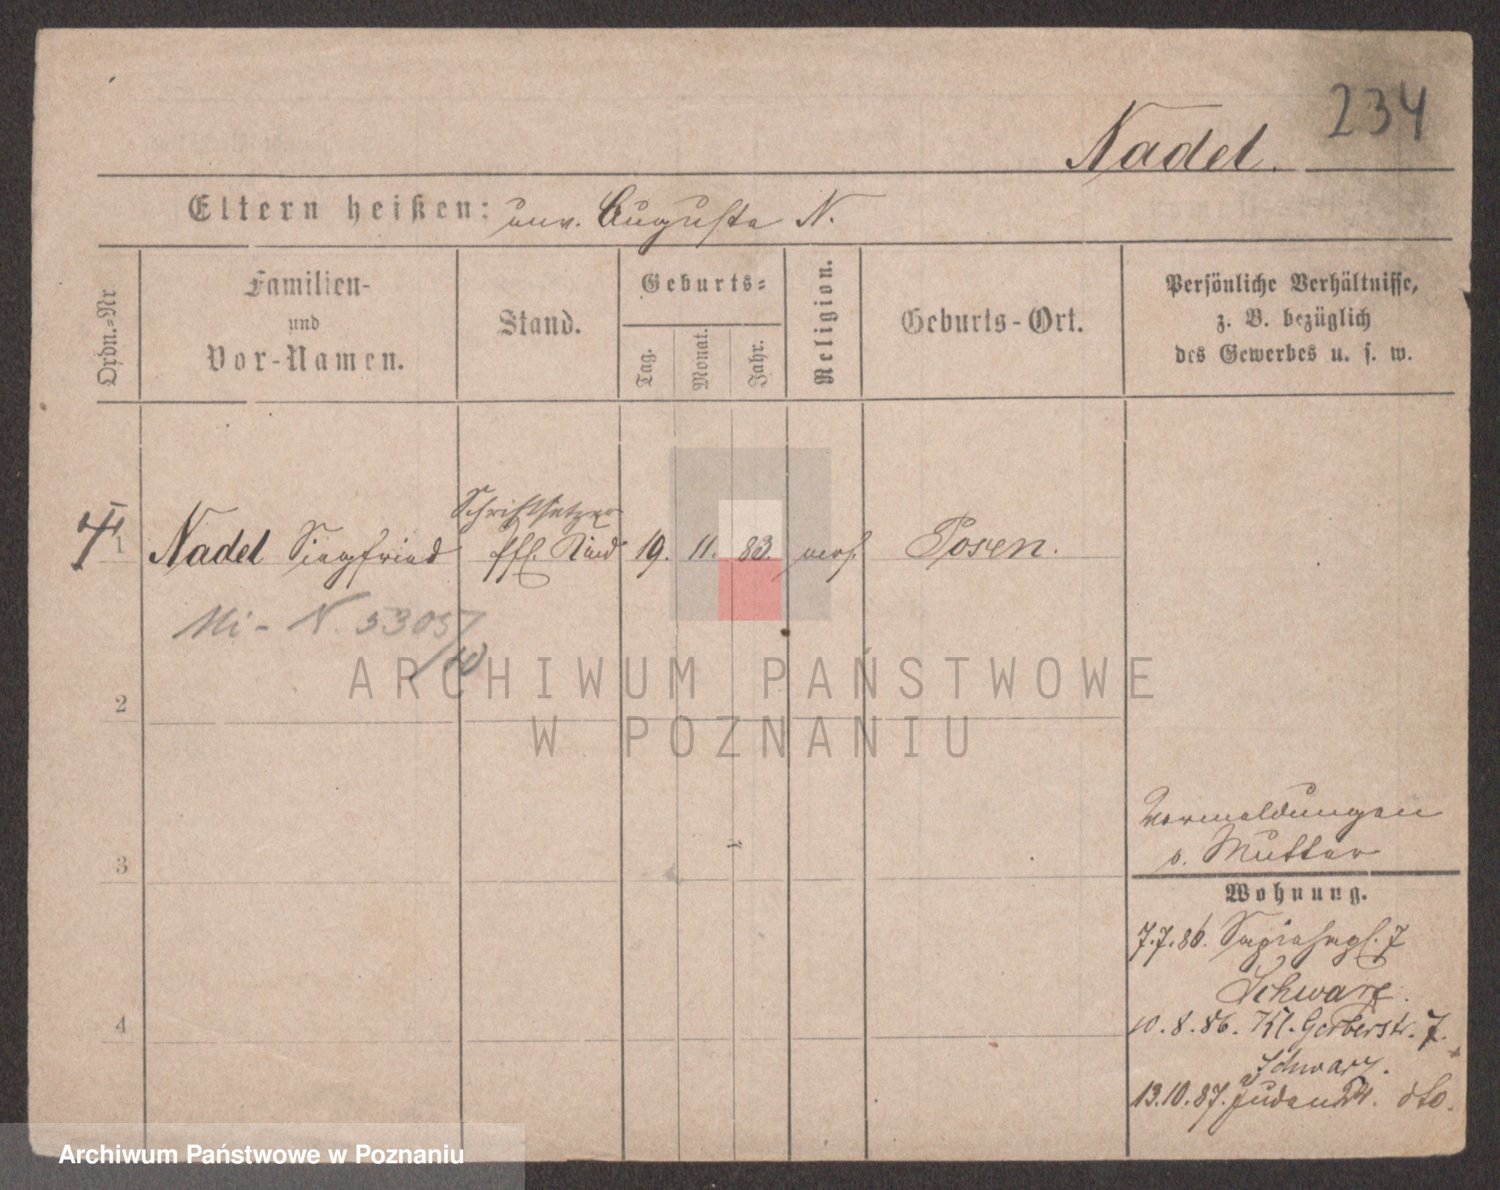 234
Nadel.
Eltern heißen: unv. Auguste N.
Ordn.-Nr.
Familien-
und
Vor-Namen.
Stand.
Geburts-
Tag.
Monat.
Jahr.
Religion.
Geburts-Ort.
Persönliche Verhältnisse,
z. B. bezüglich
des Gewerbes u. s. w.
Schriftsetzer
1 Nadel Siegfried Kind 19. 11. 83 mos. Posen.
Mi - N. 53057
/10
2
ARCHIWUM PAŃSTWOWE
W POZNANIU
3
4
Vermeldungen
s. Mutter
Wohnung.
7.7.86. Sapiehapl. 7
Schwarz.
10.8.86. Kl. Gerberstr. 7.
Schwarz.
13.10.87. Juden 24. dto.
Archiwum Państwowe w Poznaniu